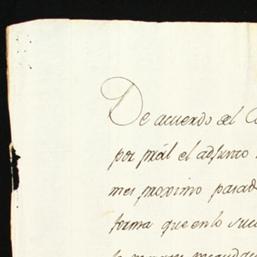 De acuerdo del C
por prál el adjunto
mes proximo pasad
forma que en lo suce